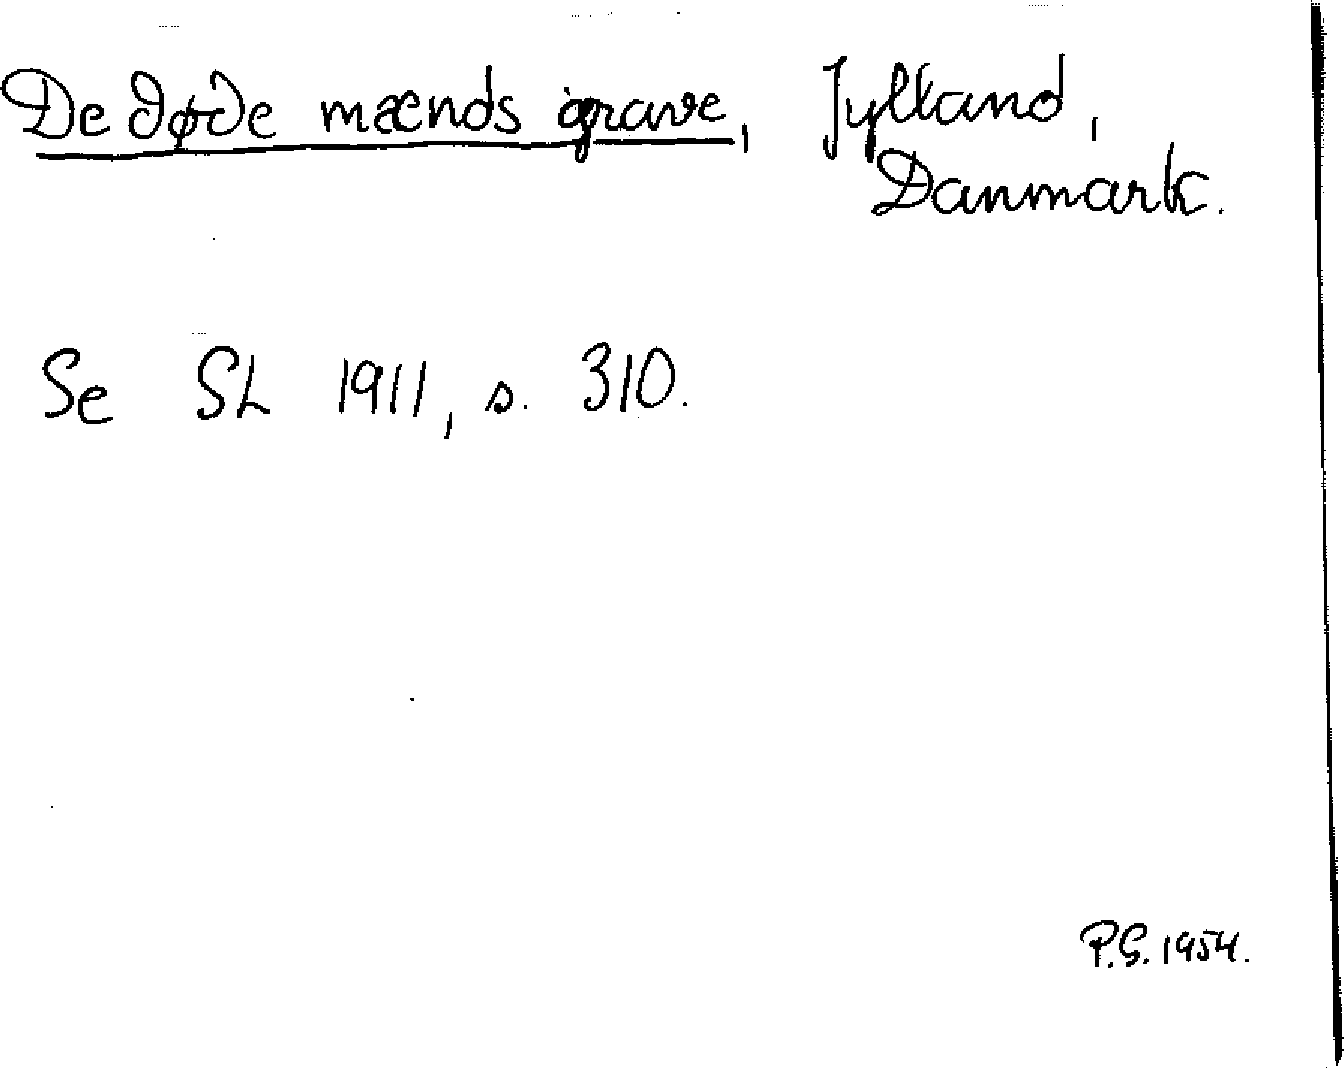 De døde mænds grave, Jylland,
Danmark.
Se SL 1911, s. 310.
P.S. 1954.